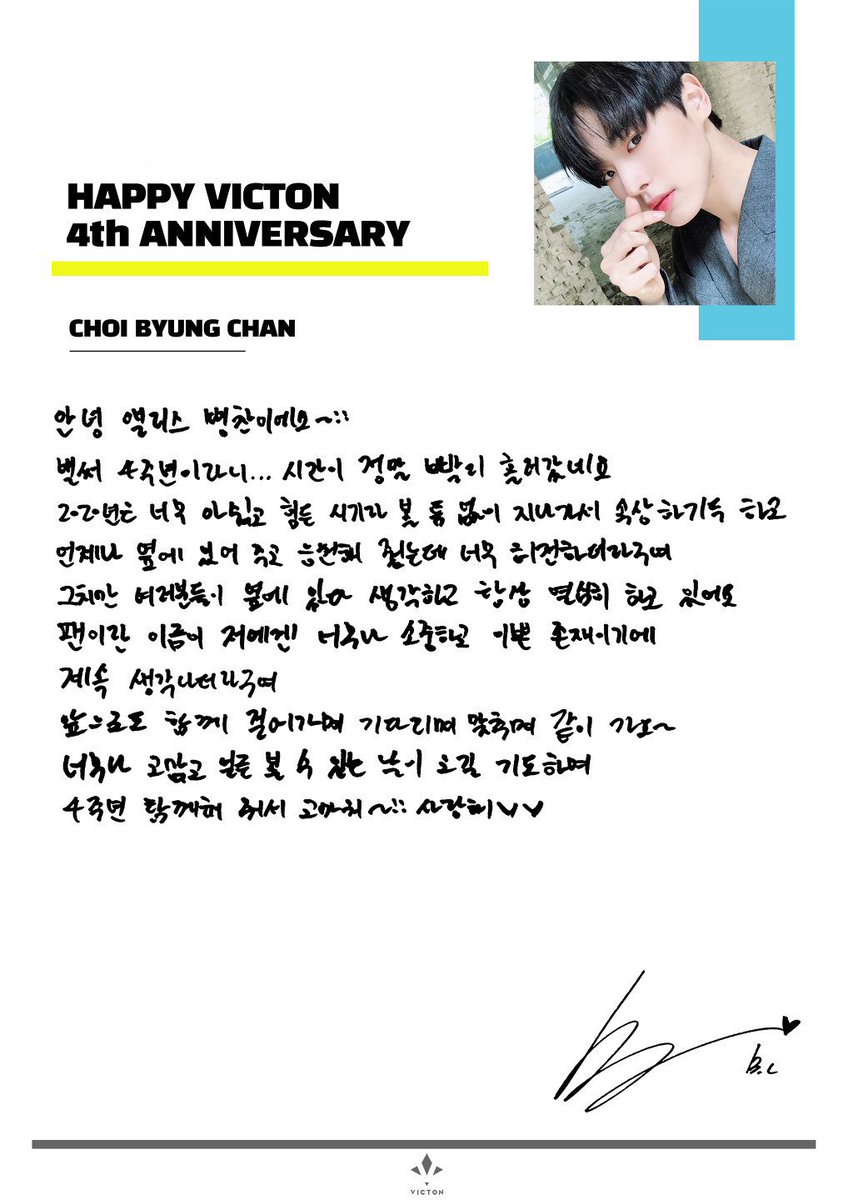 HAPPY VICTON
4th ANNIVERSARY
CHOI BYUNG CHAN
안녕 앨리스 병찬이에요~::
벌써 4주년이라니... 시간이 정말 빨리 흘러갔네요
2020년은 너무 아쉽고 힘든 시기라 볼 틈 없이 지나가서 속상하기두 하고
언제나 옆에 있어 주고 응원해 줬는데 너무 허전하더라구여
그치만 여러분들이 옆에 있다 생각하고 항상 열심히 하고 있어요
팬이란 이름이 저에겐 너무나 소중하고 이쁜 존재이기에
계속 생각나더라구여
앞으로도 함께 걸어가며 기다리며 맞추며 같이 가요~
너무나 고맙고 얼른 볼 수 있는 날이 오길 기도하며
4주년 함께해 줘서 고마워~:: 사랑해
b.c
VICTON